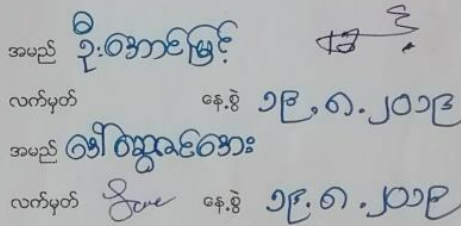 အမည် ဦးအောင်မြင့်
လက်မှတ် နေ့စွဲ ၁၉.၈.၂၀၁၉
အမည် ဒေါ်ဆွေဇင်အေး
လက်မှတ် နေ့စွဲ ၁၉.၈.၂၀၁၉